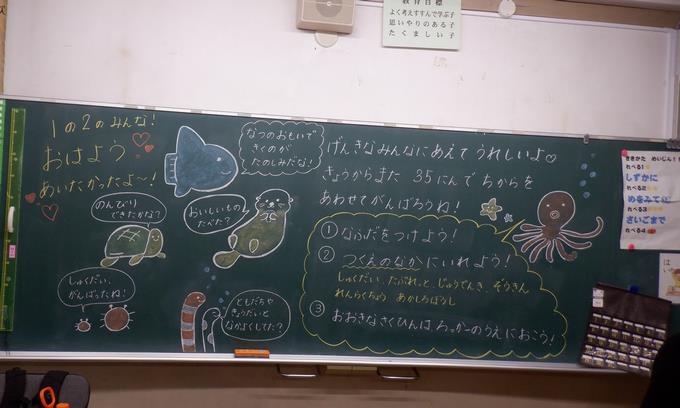 教育目標
よく考えすすんで学ぶ子
思いやりのある子
たくましい子
1の2のみんな!
おはよう
あいたかったよ~!
なつのおもいで
きくのが
たのしみだな!
のんびり
できたかな?
おいしいもの
たべた?
しゅくだい、
がんばったね!
ともだちや
きょうだいと
なかよくした?
げんきなみんなにあえてうれしいよ♡
きょうからまた 35にんでちからを
あわせてがんばろうね!
① なふだをつけよう!
② つくえのなかにいれよう!
しゅくだい、たぶれっと、じゅうでんき、ぞうきん
れんらくちょう あかしろぼうし
③ おおきなさくひんは ろっかーのうえにおこう!
ききかた めいじん!
れべる1
しずかに
れべる2
めをみて
れべる3
さいごまで
れべる4